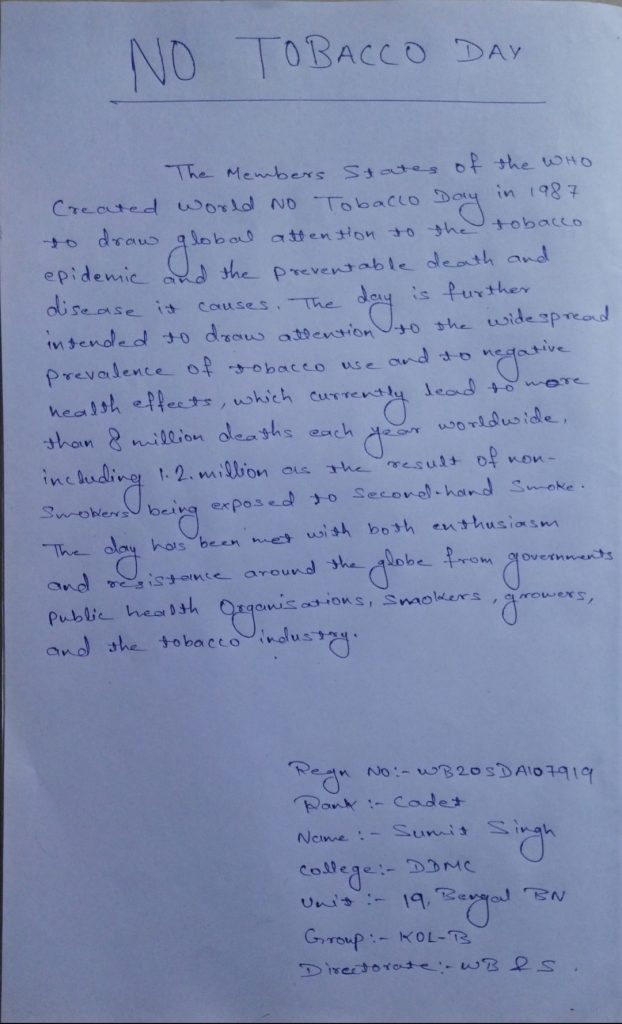 NO TOBACCO DAY
The Members States of the WHO
Created World NO Tobacco Day in 1987
to draw global attention to the tobacco
epidemic and the preventable death and
disease it causes. The day is further
intended to draw attention to the widespread
prevalence of tobacco use and to negative
health effects, which currently lead to more
than 8 million deaths each year worldwide,
including 1.2. million as the result of non-
Smokers being exposed to Second-hand Smoke.
The day has been met with both enthusiasm
and resistance around the globe from governments
public health Organisations, smokers, growers,
and the tobacco industry.
Regn No:- WB20SDA107919
Rank :- Cadet
Name :- Sumit Singh
College:- DDMC
Unit :- 19, Bengal BN
Group:- KOL-B
Directorate:- WB & S.